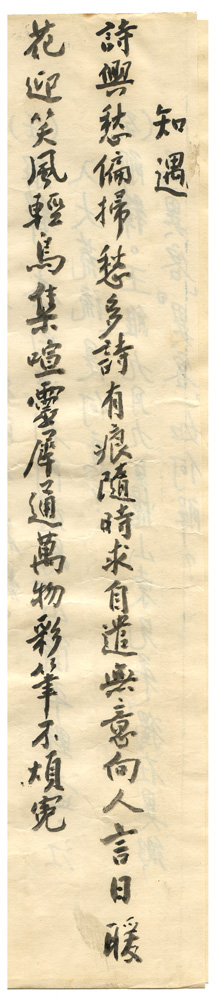 知遇
詩興愁偏掃愁多詩有痕隨時求自遣無意向人言日暖
花迎笑風輕鳥集喧靈犀通萬物彩筆不煩冤